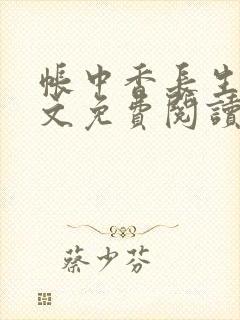 帳中香長生
文免費閱讀
蔡少芬